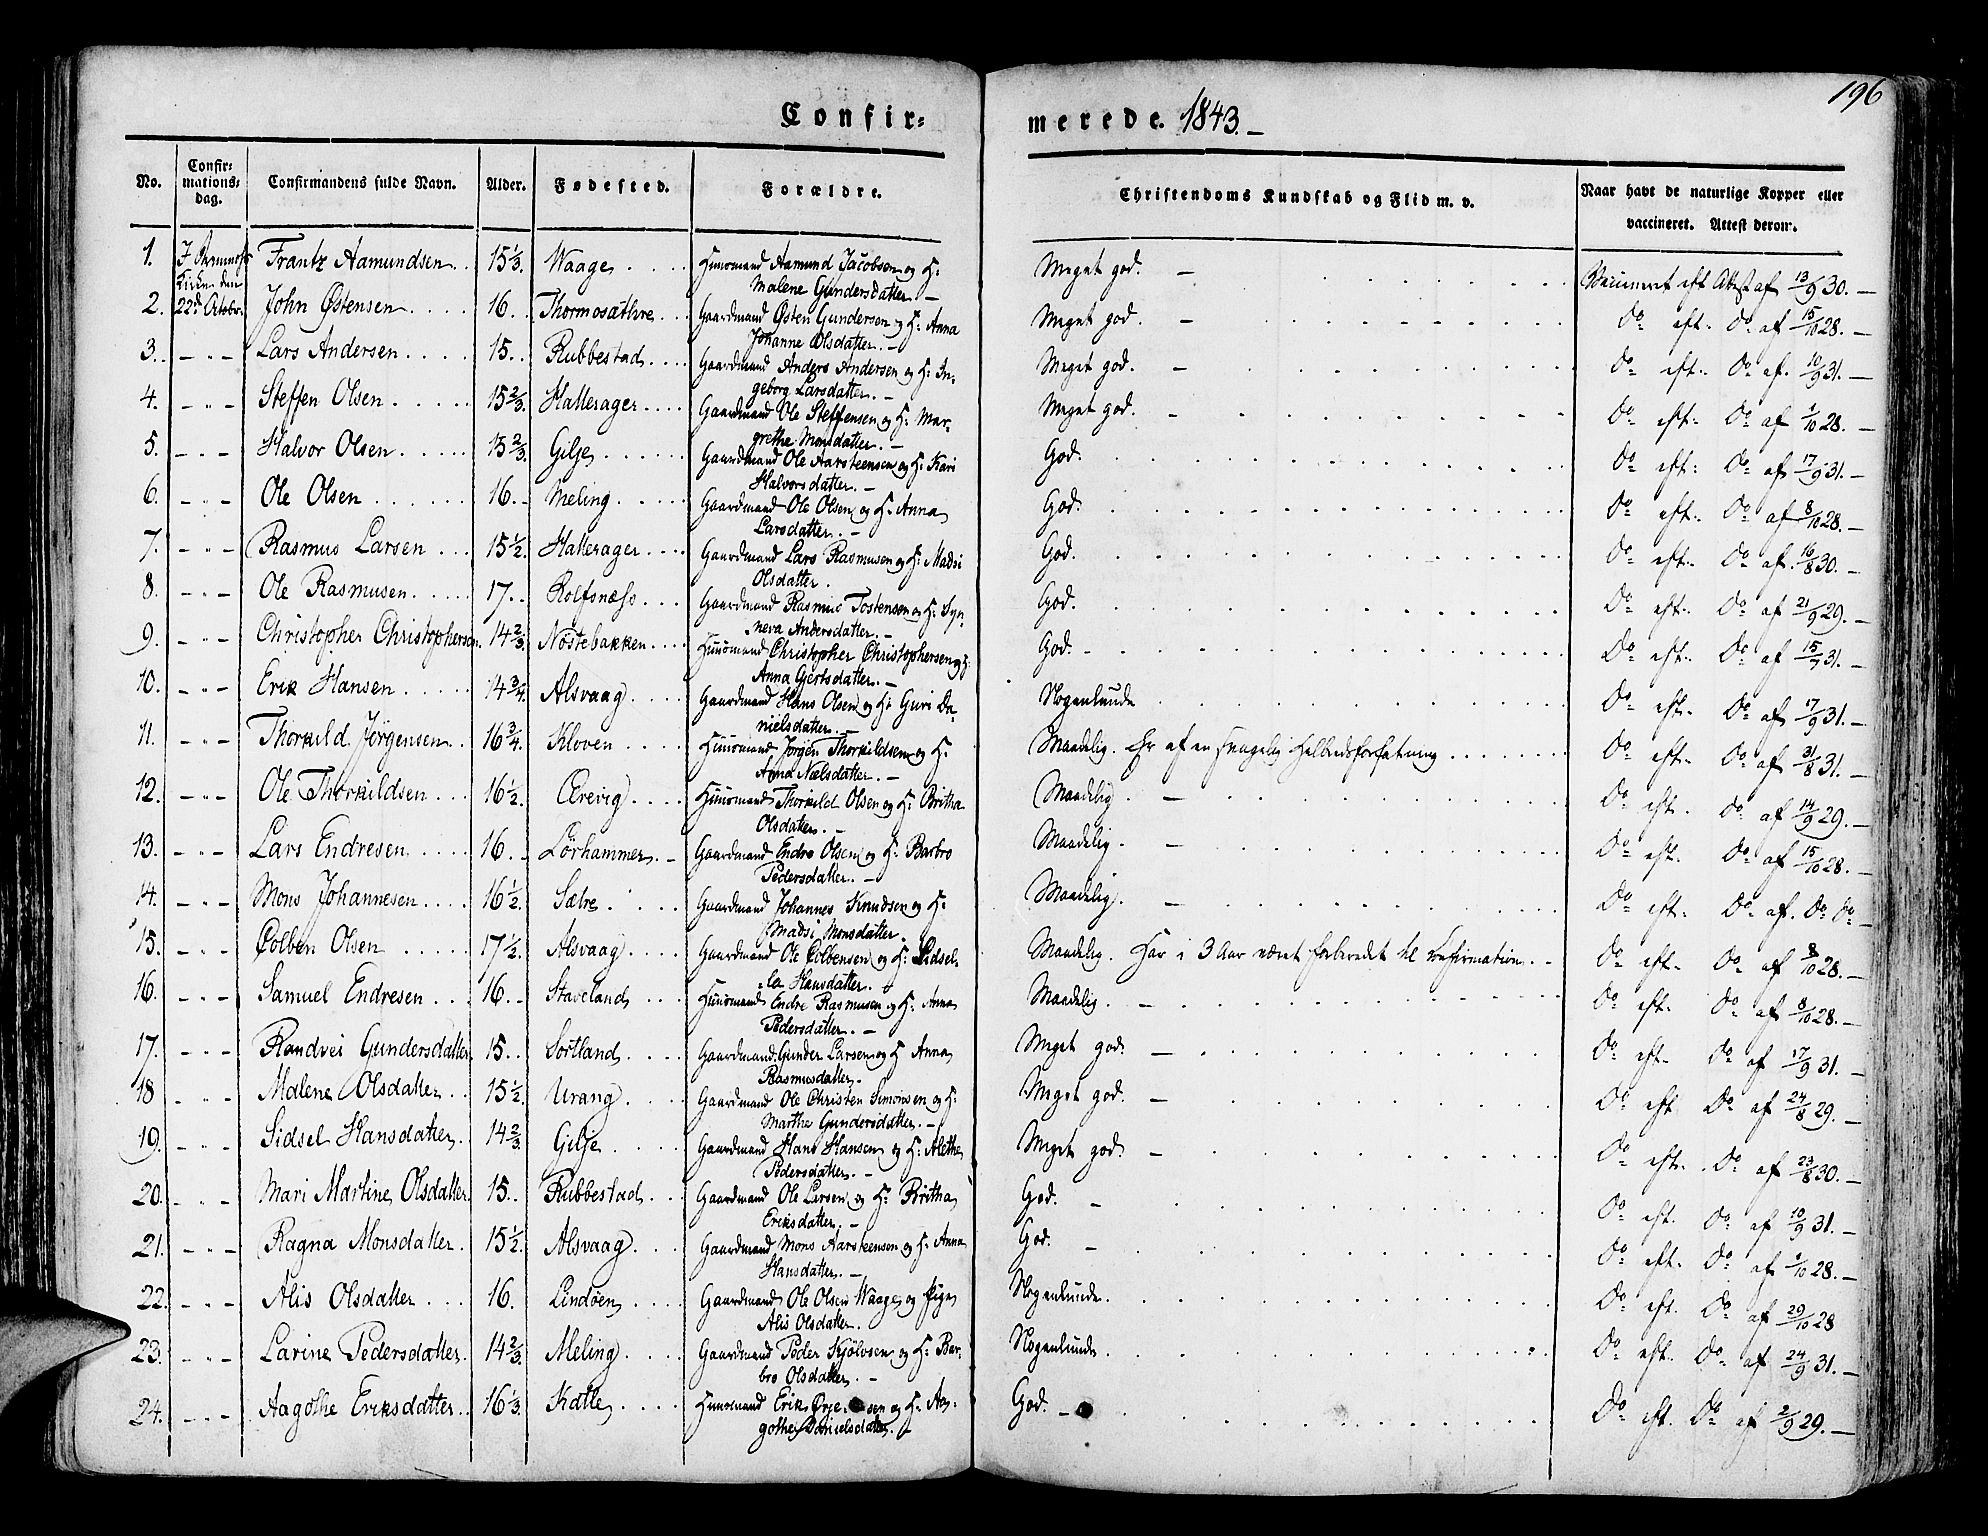 196
Confir- merede. 1843.
No. Confir-mations-dag. Confirmandens fulde Navn. Alder. Fødested. Forældre. Christendoms Kundskab og Flid m. v. Naar havt de naturlige Kopper eller vaccineret. Attest derom.
1. I Kirken den Frantz Aamundsen 15 1/3. Waage Huusmand Aamund Jacobsen og H: Meget god. Vaccineret eft Attest af 13/9 30.
Malene Gundersdatter.
2. 22de Octobr. John Østensen 16. Thormosæthre Gaardmand Østen Gundersen og H: Anna Meget god. Do eft. Do af 15/10 28.
Johanne Olsdatter.
3. Lars Andersen 15. Rubbestad Gaardmand Anders Andersen og H: In- Meget god. Do eft. Do af 10/9 31.
geborg Larsdatter.
4. Steffen Olsen 15 2/3. Hallerager Gaardmand Ole Steffensen og H: Mar- Meget god. Do eft. Do af 1/10 28.
grethe Monsdatter.
5. Halvor Olsen 15 2/3. Gilje Gaardmand Ole Aarsteensen og H: Kari God. Do eft: Do af 17/9 31.
Halvorsdatter.
6. Ole Olsen 16. Meling Gaardmand Ole Olsen og H: Anna God. Do eft. Do af 8/10 28.
Larsdatter.
7. Rasmus Larsen 15 1/2. Hallerager Gaardmand Lars Rasmusen og H: Madsi God. Do eft. Do af 16/8 30.
Olsdatter.
8. Ole Rasmusen 17. Rolfsnæss Gaardmand Rasmus Tostensen og H: Syn- God. Do eft. Do af 21/9 29.
neva Andersdatter.
9. Christopher Christophersen 14 2/3. Nöstebakken Huusmand Christopher Christophersen og H: God. Do eft. Do af 15/7 31.
Anna Gjertsdatter.
10. Erik Hansen 14 3/4. Alsvaag Gaardmand Hans Olsen og H: Guri Da- Nogenlunde Do eft. Do af 17/9 31.
nielsdatter.
11. Thorkild Jörgensen 16 3/4. Kloven Huusmand Jörgen Thorkildsen og H: Maadelig. Er af en svagelig Helbredsforfatning Do eft. Do af 31/8 31.
Anna Nælsdatter.
12. Ole Thorkildsen 16 1/2. Ærevig Huusmand Thorkild Olsen og H: Britha Maadelig Do eft. Do af 14/9 29.
Olsdatter.
13. Lars Endresen 16. Lörhammer Gaardmand Endre Olsen og H: Barbro Maadelig. Do eft. Do af 15/10 28.
Pedersdatter.
14. Mons Johannesen 16 1/2. Sætre Gaardmand Johannes Knudsen og H: Maadelig. Do eft. Do af. Do Do
Madsi Monsdatter.
15. Colben Olsen 17 1/2. Alsvaag Gaardmand Ole Colbensen og H: Sidsel- Maadelig. Har i 3 Aar været forberedet til Confirmation. Do eft. Do af 8/10 28.
la Hansdatter.
16. Samuel Endresen 16. Staveland Huusmand Endre Rasmusen og H: Anna Maadelig. Do eft. Do af 8/10 28.
Pedersdatter.
17. Randvei Gundersdatter 15. Sortland Gaardmand Gunder Larsen og H Anna Meget god. Do eft. Do af 17/9 31.
Rasmusdatter.
18 Malene Olsdatter 15 1/2. Urang Gaardmand Ole Christen Simonsen og H: Meget god. Do eft Do af 24/8 29.
Marthe Gundersdatter.
19. Sidsel Hansdatter. 14 2/3. Gilje Gaardmand Hans Hansen og H: Alethe Meget god. Do eft. Do af 23/8 30.
Pedersdatter.
20. Mari Martine Olsdatter 15. Rubbestad Gaardmand Ole Larsen og H: Britha God. Do eft. Do af 10/9 31.
Eriksdatter.
21. Ragna Monsdatter. 15 1/2. Alsvaag Gaardmand Mons Aarsteensen og H: Anna God. Do eft. Do af 1/10 28.
Hansdatter.
22. Alis Olsdatter 16. Lindöen Gaardmand Ole Olsen Waage og Pige Nogenlunde. Do eft. Do af 29/10 28
Alis Olsdatter.
23. Larine Pedersdatter. 14 2/3. Meling Gaardmand Peder Kjölvsen og H: Bar- Nogenlunde. Do eft. Do af 24/9 31.
bro Olsdatter.
24. Aagothe Eriksdatter. 16 1/3. Katle Huusmand Erik og H: Aa- God. Do eft. Do af 2/9 29.
gothe Danielsdatter.